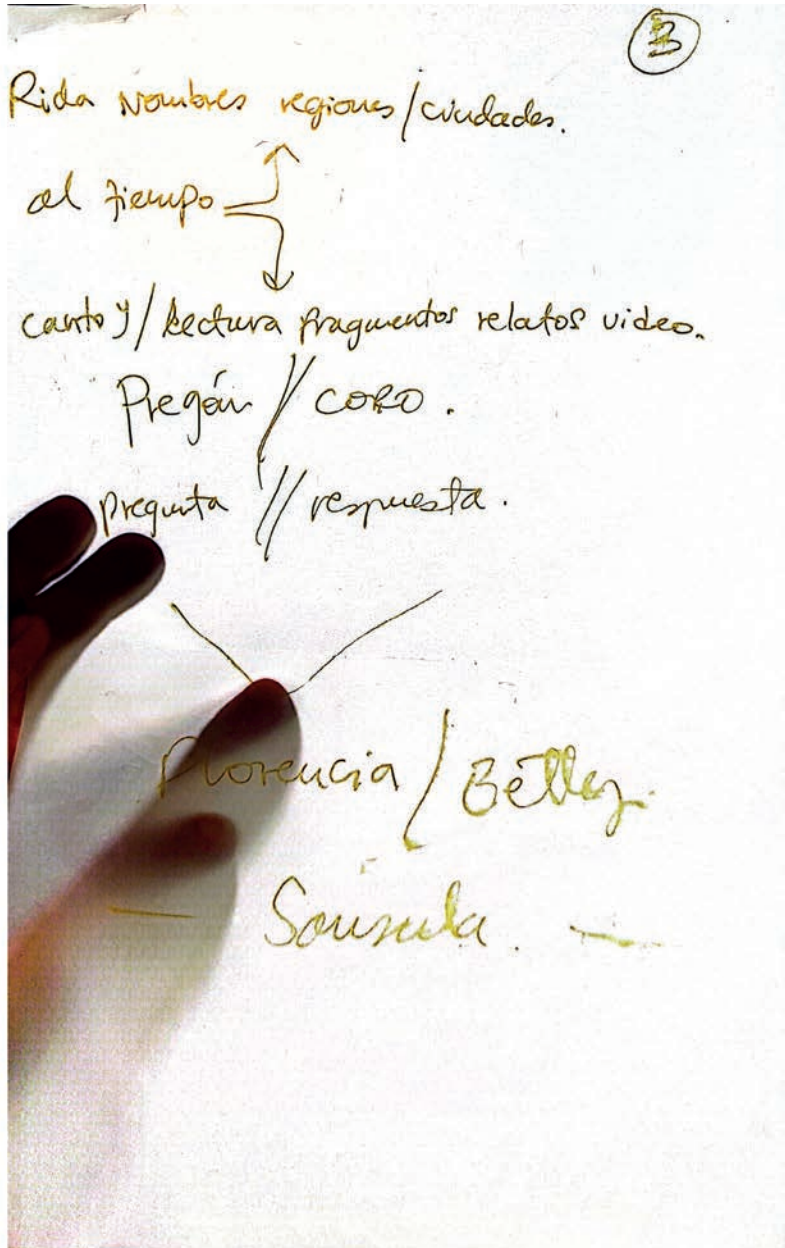 3
Rida Nombres regiones/ciudades.
al tiempo
canto y/lectura fragmentos relatos video.
Pregón // CORO.
pregunta // respuesta.
Florencia / Betty.